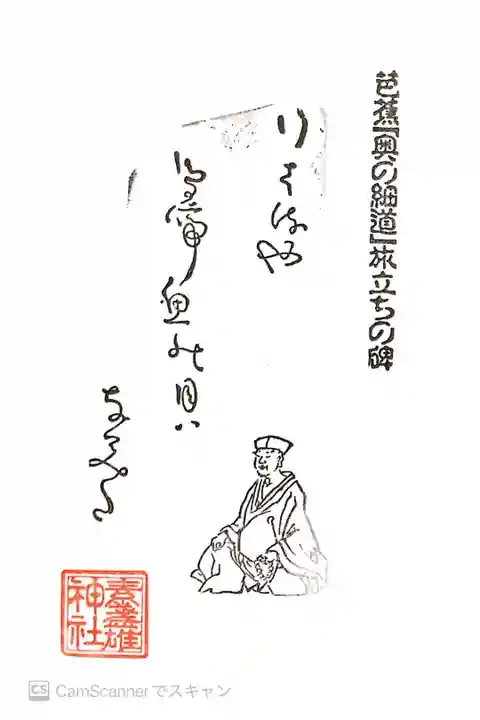 芭蕉『奥の細道』旅立ちの碑
行はるや
鳥啼魚の目は
なみだ
素盞雄
神社
CS CamScannerでスキャン